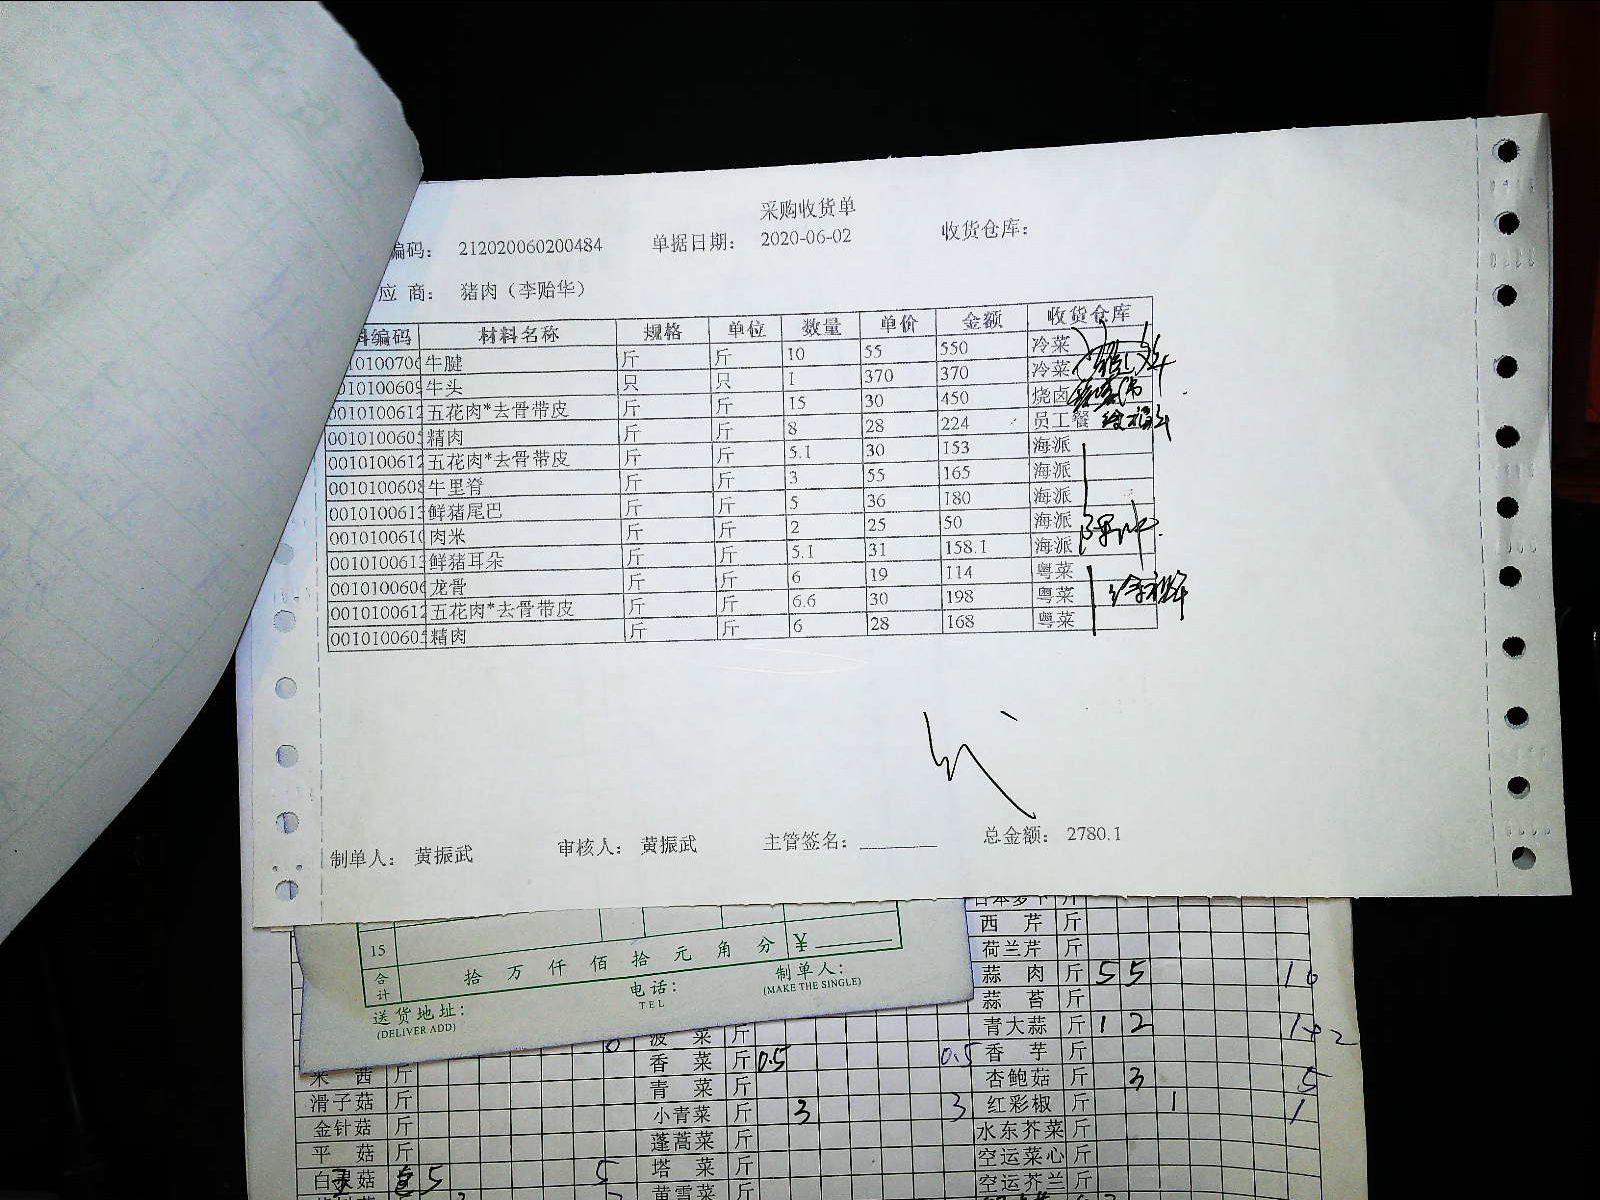 采购收货单
编码： 212020060200484 单据日期： 2020-06-02 收货仓库：
应 商： 猪肉（李贻华）
编码 材料名称 规格 单位 数量 单价 金额 收货仓库
10100706 牛腱 斤 斤 10 55 550 冷菜
010100609 牛头 只 只 1 370 370 冷菜
0010100612 五花肉*去骨带皮 斤 斤 15 30 450 烧卤
0010100605 精肉 斤 斤 8 28 224 员工餐
0010100612 五花肉*去骨带皮 斤 斤 5.1 30 153 海派
0010100608 牛里脊 斤 斤 3 55 165 海派
0010100613 鲜猪尾巴 斤 斤 5 36 180 海派
0010100610 肉米 斤 斤 2 25 50 海派
0010100613 鲜猪耳朵 斤 斤 5.1 31 158.1 海派
0010100606 龙骨 斤 斤 6 19 114 粤菜
0010100612 五花肉*去骨带皮 斤 斤 6.6 30 198 粤菜
0010100605 精肉 斤 斤 6 28 168 粤菜
制单人： 黄振武 审核人： 黄振武 主管签名： 总金额： 2780.1
15
合计 拾 万 仟 佰 拾 元 角 分 ¥
送货地址： 电话： 制单人：
(DELIVER ADD) TEL (MAKE THE SINGLE)
西 芹 斤
荷兰芹 斤
蒜 肉 斤 5 5 10
蒜 苔 斤
青大蒜 斤 1 2 1+2
菠 菜 斤
香 菜 斤 0.5 0.5
香 芋 斤
青 菜 斤
杏鲍菇 斤 3 5
滑子菇 斤
小青菜 斤 3 3
红彩椒 斤 1 1
金针菇 斤
蓬蒿菜 斤
水东芥菜 斤
平 菇 斤
塔 菜 斤
空运菜心 斤
白灵菇 5 5
黄雪菜 斤
空运芥兰 斤